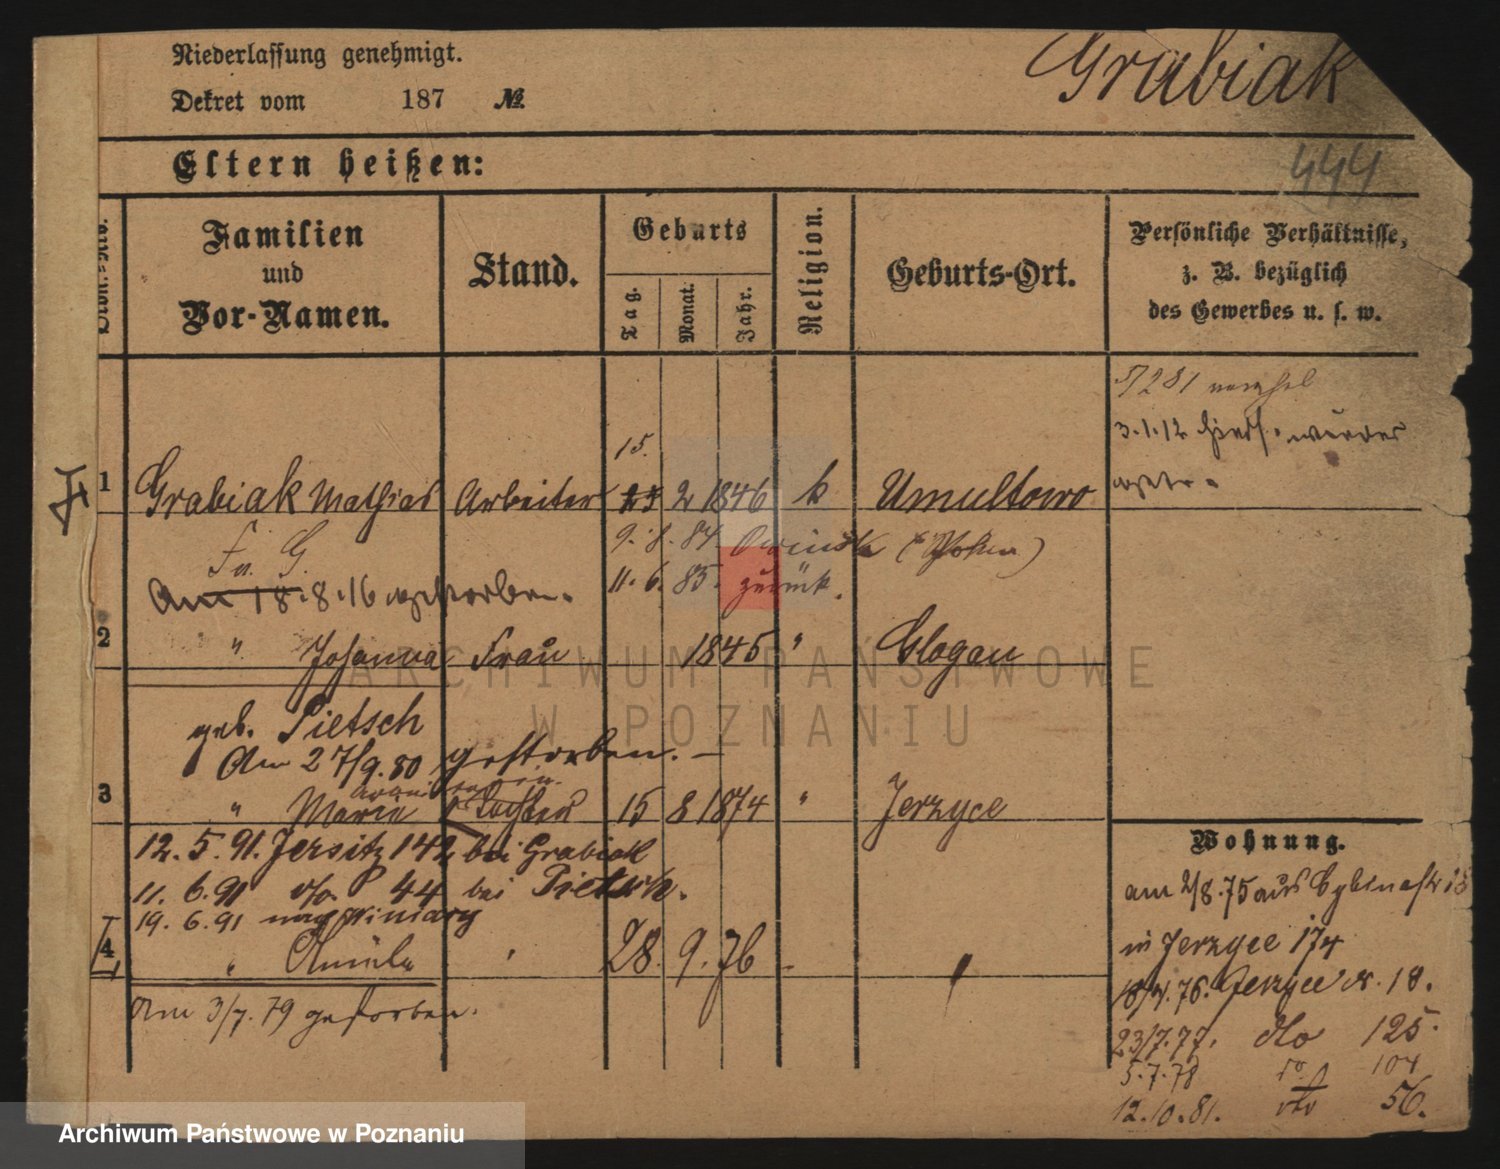 Niederlassung genehmigt.
Dekret vom 187 №.
Grabiak
444
Eltern heißen:
Familien und Vor-Namen.
Stand.
Geburts
Tag.
Monat.
Jahr.
Religion.
Geburts-Ort.
Persönliche Verhältnisse,
z. B. bezüglich
des Gewerbes u. s. w.
3.1.12
15.
1 Grabiak Mathias Arbeiter 2 1846 k Umultowo
Fr. G. 9.8.84. Owinsk
Am 18.8.16 verstorben. 11.6.85. zurück.
2 " Johanna Frau 1845 " Glogau
geb. Pietsch
Am 27/9.80 gestorben. —
3 " Maria Tochter 15 8 1874 " Jerzyce
12.5.91. Jersitz 142 bei Grabiak
11.6.91 do. 44 bei Pietsch.
19.6.91 nach Winiary
4 " 28. 9. 76
Am 3/7.79 gestorben.
Wohnung.
am 2/8.75 aus
in Jerzyce 174
Jerzyce N. 18.
23/7.77. dto 125.
5.7.78 do 104
12.10.81. dto 56.
ARCHIWUM PAŃSTWOWE
W POZNANIU
Archiwum Państwowe w Poznaniu